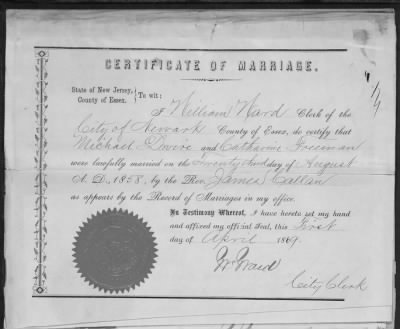 CERTIFICATE OF MARRIAGE.
State of New Jersey,
County of Essex.
To wit:
I William Ward Clerk of the
City of Newark County of Essex, do certify that
Michael and Catharine Freeman
were lawfully married on the Twenty day of August
A. D., 1858, by the Rev. James Callan
as appears by the Record of Marriages in my office.
In Testimony Whereof, I have hereto set my hand
and affixed my official Seal, this First
day of April 1869.
Wm Ward
City Clerk